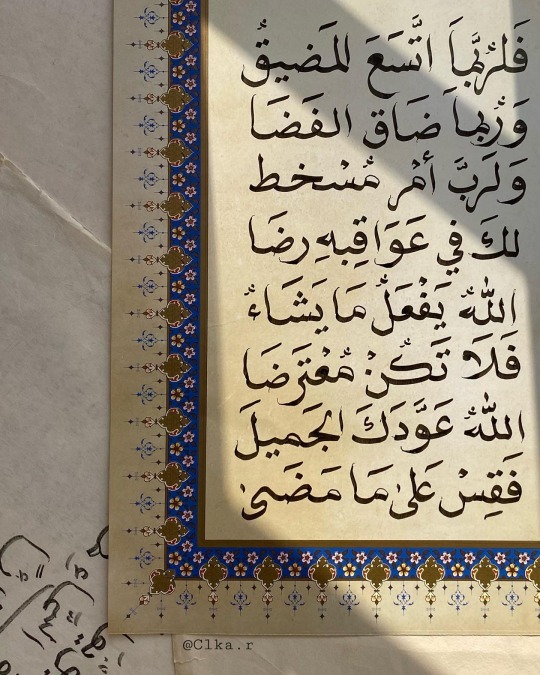 فَلَرُبَّمَا اتَّسَعَ المَضيقُ
وَرُبما ضَاق الفَضَا
وَلَرَبَّ أمْر مُسْخط
لكَ في عَوَاقبهِ رضَا
اللهُ يَفْعَلُ مَا يَشَاءُ
فَلَا تَكُنْ مُعْتَرضَا
اللهُ عَوَّدَكَ الجَميلَ
فَقِسْ عَلىٰ مَا مَضَىٰ
@Clka.r